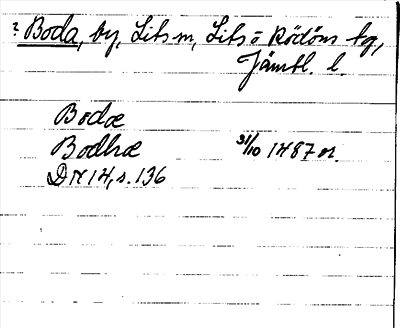 ? Boda, by, Lits sn, Lits o Rödöns tg,
Jämtl. l.
Bodæ
Bodhæ 31/10 1487 or.
DN 14, s. 136